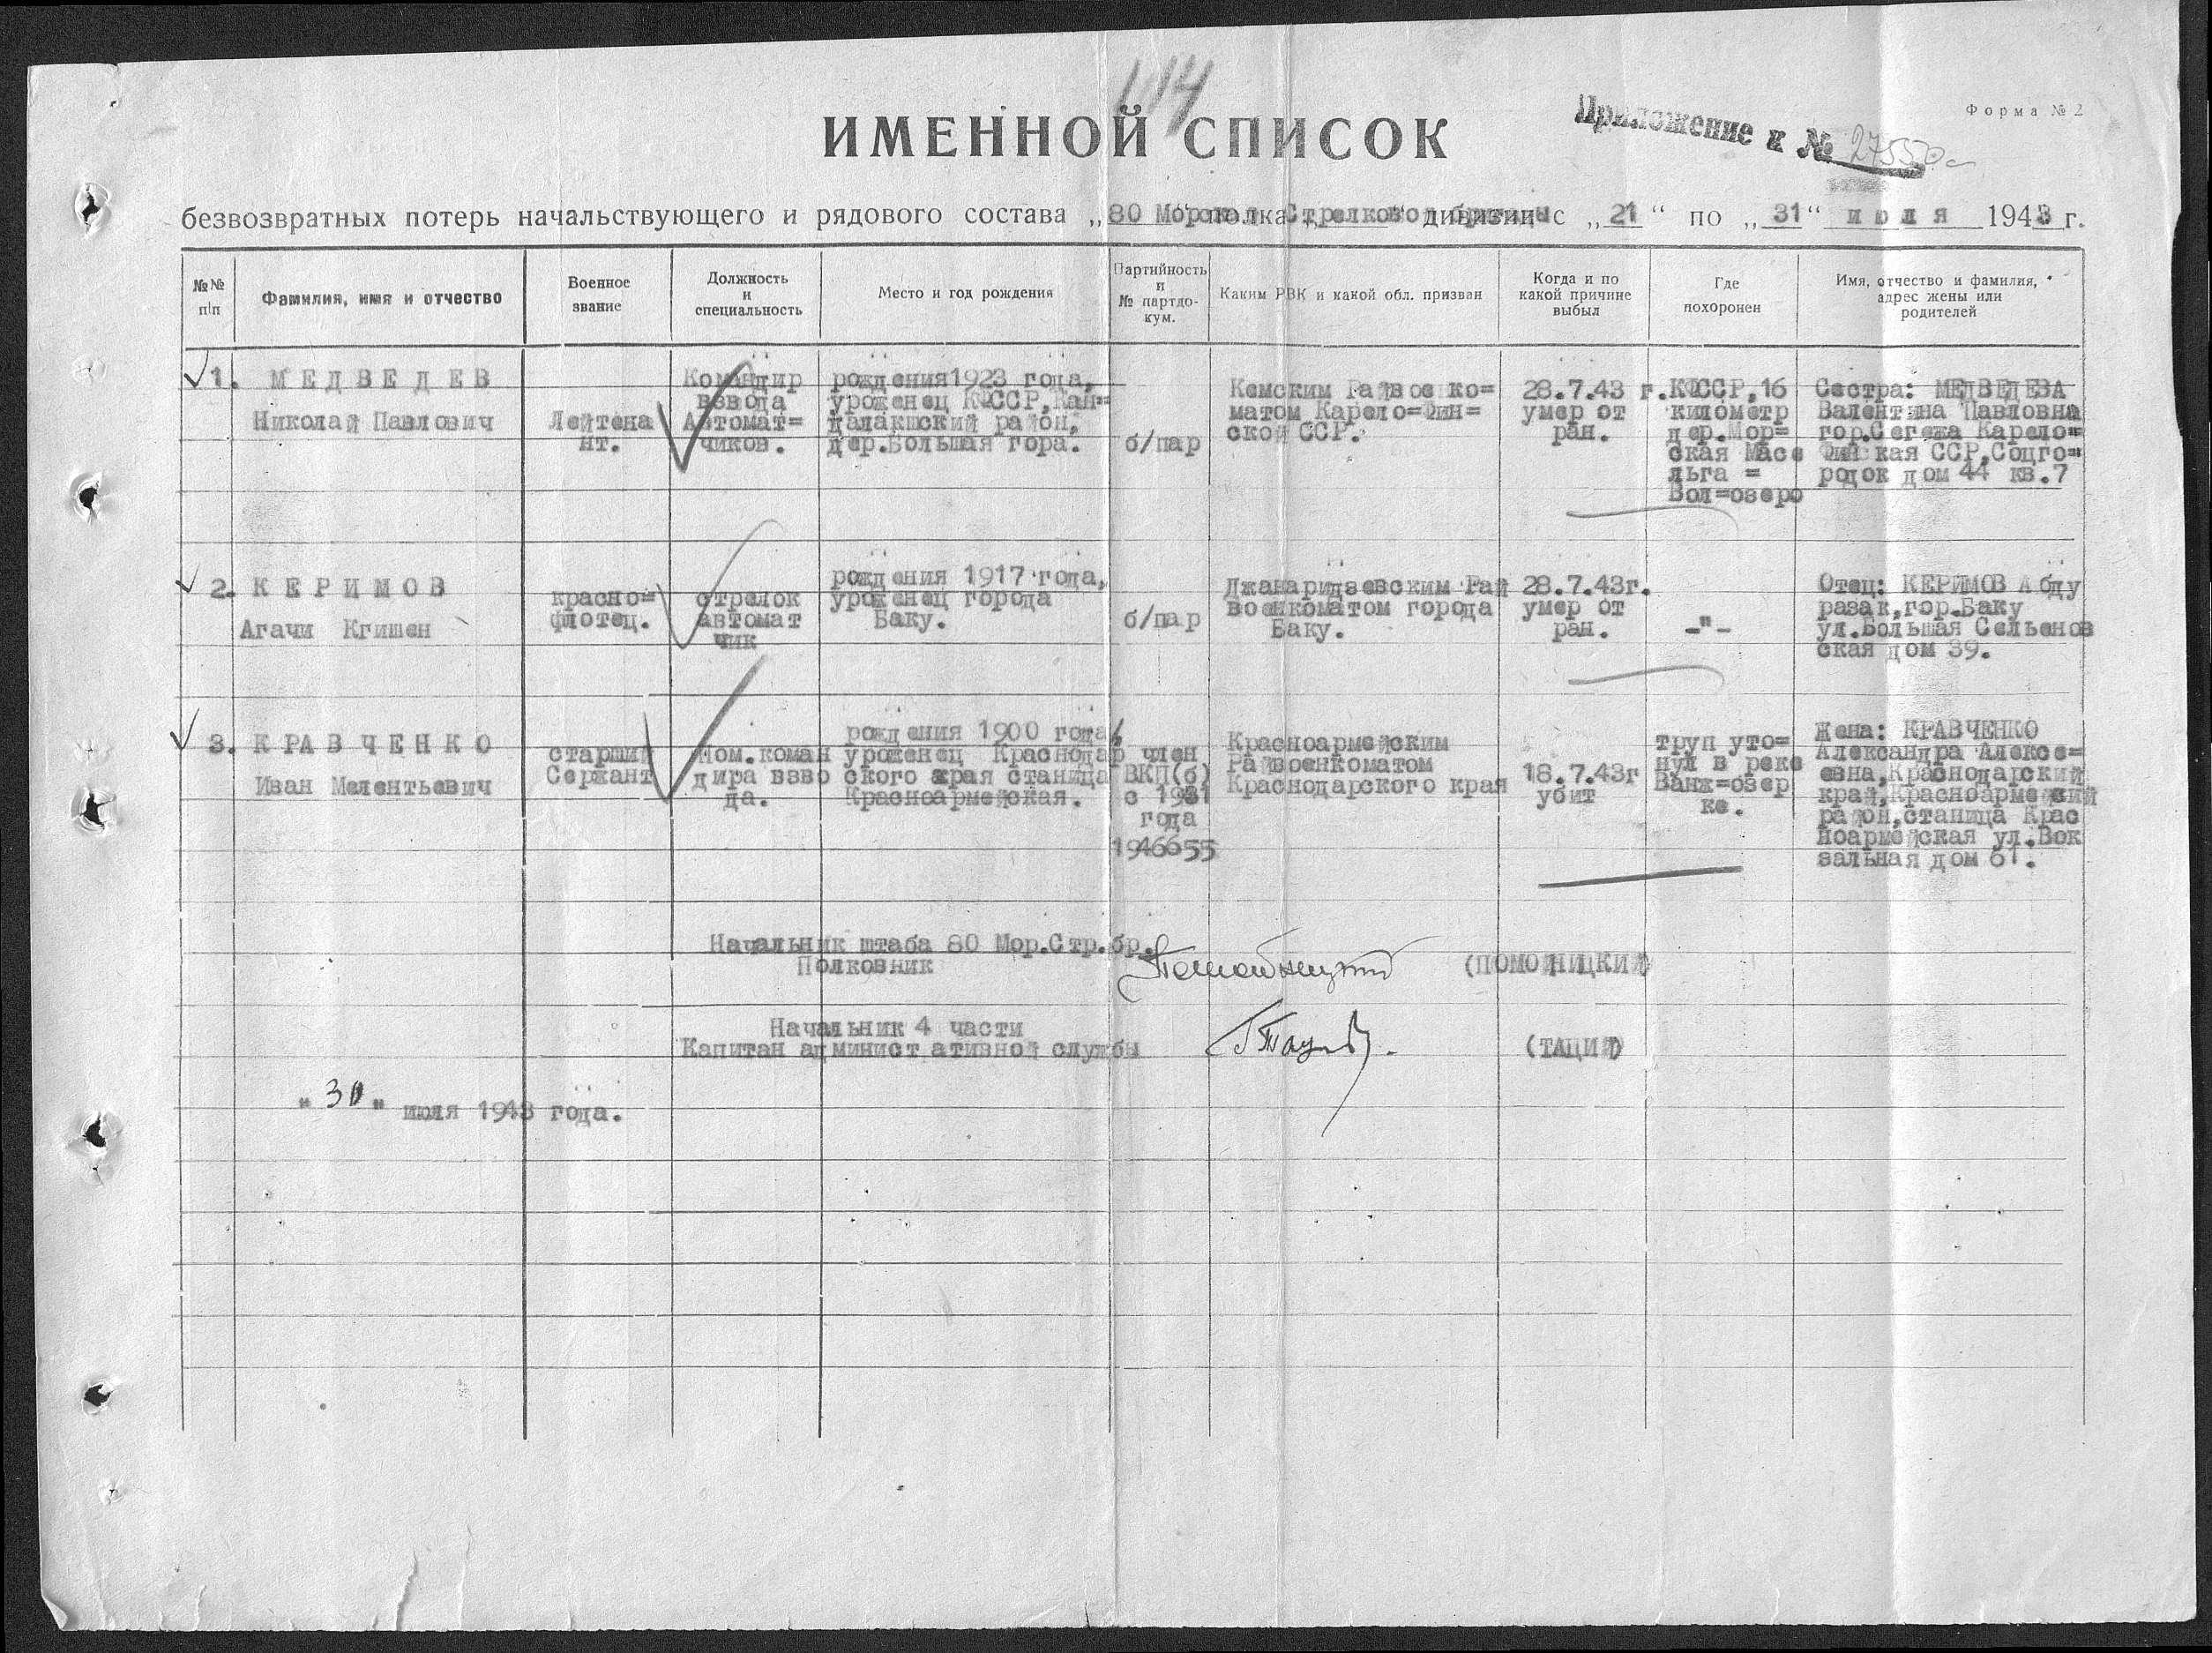 114
ИМЕННОЙ СПИСОК
Приложение к № 27550с
Форма № 2
безвозвратных потерь начальствующего и рядового состава „80 Морской полка Стрелковой бригады дивизии с „21“ по „31“ июля 1943 г.
№№ п|п
Фамилия, имя и отчество
Военное звание
Должность и специальность
Место и год рождения
Партийность и № партдо-кум.
Каким РВК и какой обл. призван
Когда и по какой причине выбыл
Где похоронен
Имя, отчество и фамилия, адрес жены или родителей
1. МЕДВЕДЕВ
Николай Павлович
Лейтена
нт.
Командир
взвода
Автомат=
чиков.
рождения 1923 года,
уроженец КФССР, Кан=
далакшский район,
дер.Большая гора.
б/пар
Кемским Райвоенко=
матом Карело=Фин=
ской ССР.
28.7.43 г.
умер от
ран.
КФССР, 16
километр
дер.Мор=
ская Масе
льга =
Вол=озеро
Сестра: МЕДВЕДЕВА
Валентина Павловна
гор.Сегежа Карело=
Финская ССР, Соцго=
родок дом 44 кв.7
2. КЕРИМОВ
Агачи Кгишен
красно=
флотец.
стрелок
автомат
чик
рождения 1917 года,
уроженец города
Баку.
б/пар
Джапаридзевским Рай
военкоматом города
Баку.
28.7.43г.
умер от
ран.
-"-
Отец: КЕРИМОВ Абду
разак, гор.Баку
ул.Большая Сельенов
ская дом 39.
3. КРАВЧЕНКО
Иван Мелентьевич
старший
Сержант
Пом.коман
дира взво
да.
рождения 1900 года,
уроженец Краснодар
ского края станица
Красноармейская.
член
ВКП(б)
с 1931
года
1946655
Красноармейским
Райвоенкоматом
Краснодарского края
18.7.43г
убит
труп уто=
нул в реке
Ванж=озер
ке.
Жена: КРАВЧЕНКО
Александра Алексе=
евна, Краснодарский
край, Красноармейский
район, станица Крас
ноармейская ул.Вок
зальная дом 61.
Начальник штаба 80 Мор.Стр.бр.
Полковник
(ПОМОЙНИЦКИЙ)
Начальник 4 части
Капитан административной службы
(ТАЦИЙ)
"30" июля 1943 года.